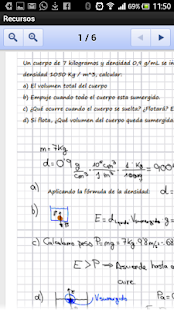 11:50
Recursos
1 / 6
Un cuerpo de 7 kilogramos y densidad 0,9 g/mL se in
densidad 1030 Kg / m^3, calcular:
a) El volumen total del cuerpo
b) Empuje cuando todo el cuerpo esta sumergido
c) ¿Qué ocurre cuando el cuerpo se suelta? ¿Flotará? E
d) Si flota, ¿Qué volumen del cuerpo queda sumergido
m = 7kg
d = 0'9 g/cm³ · 10⁶ cm³/1 m³ · 1 Kg/1000g = 900
a) Aplicando la fórmula de la densidad: d =
b) E = d líquido V sumergido · g
c) Calculamos peso P = mg = 7kg · 9.8 m/s² = 68
E > P → Asciende hasta q
aire.
d) V sumergido Pa =